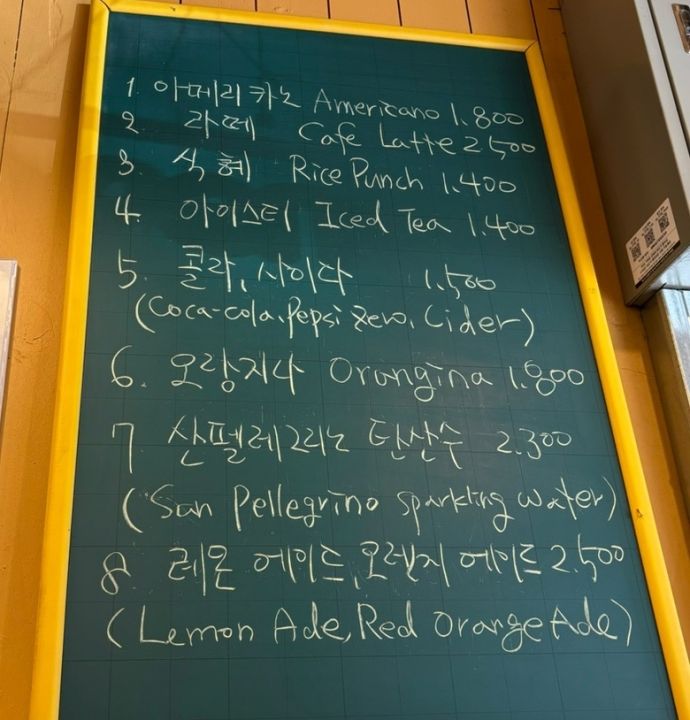 1. 아메리카노 Americano 1.800
2. 라떼 Cafe Latte 2.500
3. 식혜 Rice Punch 1.400
4. 아이스티 Iced Tea 1.400
5. 콜라, 사이다 1.500
(Coca-cola, Pepsi Zero, Cider)
6. 오랑지나 Orangina 1.800
7. 산펠레그리노 탄산수 2.300
(San Pellegrino sparkling water)
8. 레몬 에이드, 오렌지 에이드 2.500
(Lemon Ade, Red Orange Ade)